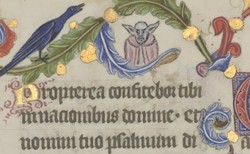 Propterea confitebor tibi
in nacionibus domine· et
nomini tuo psalmum di